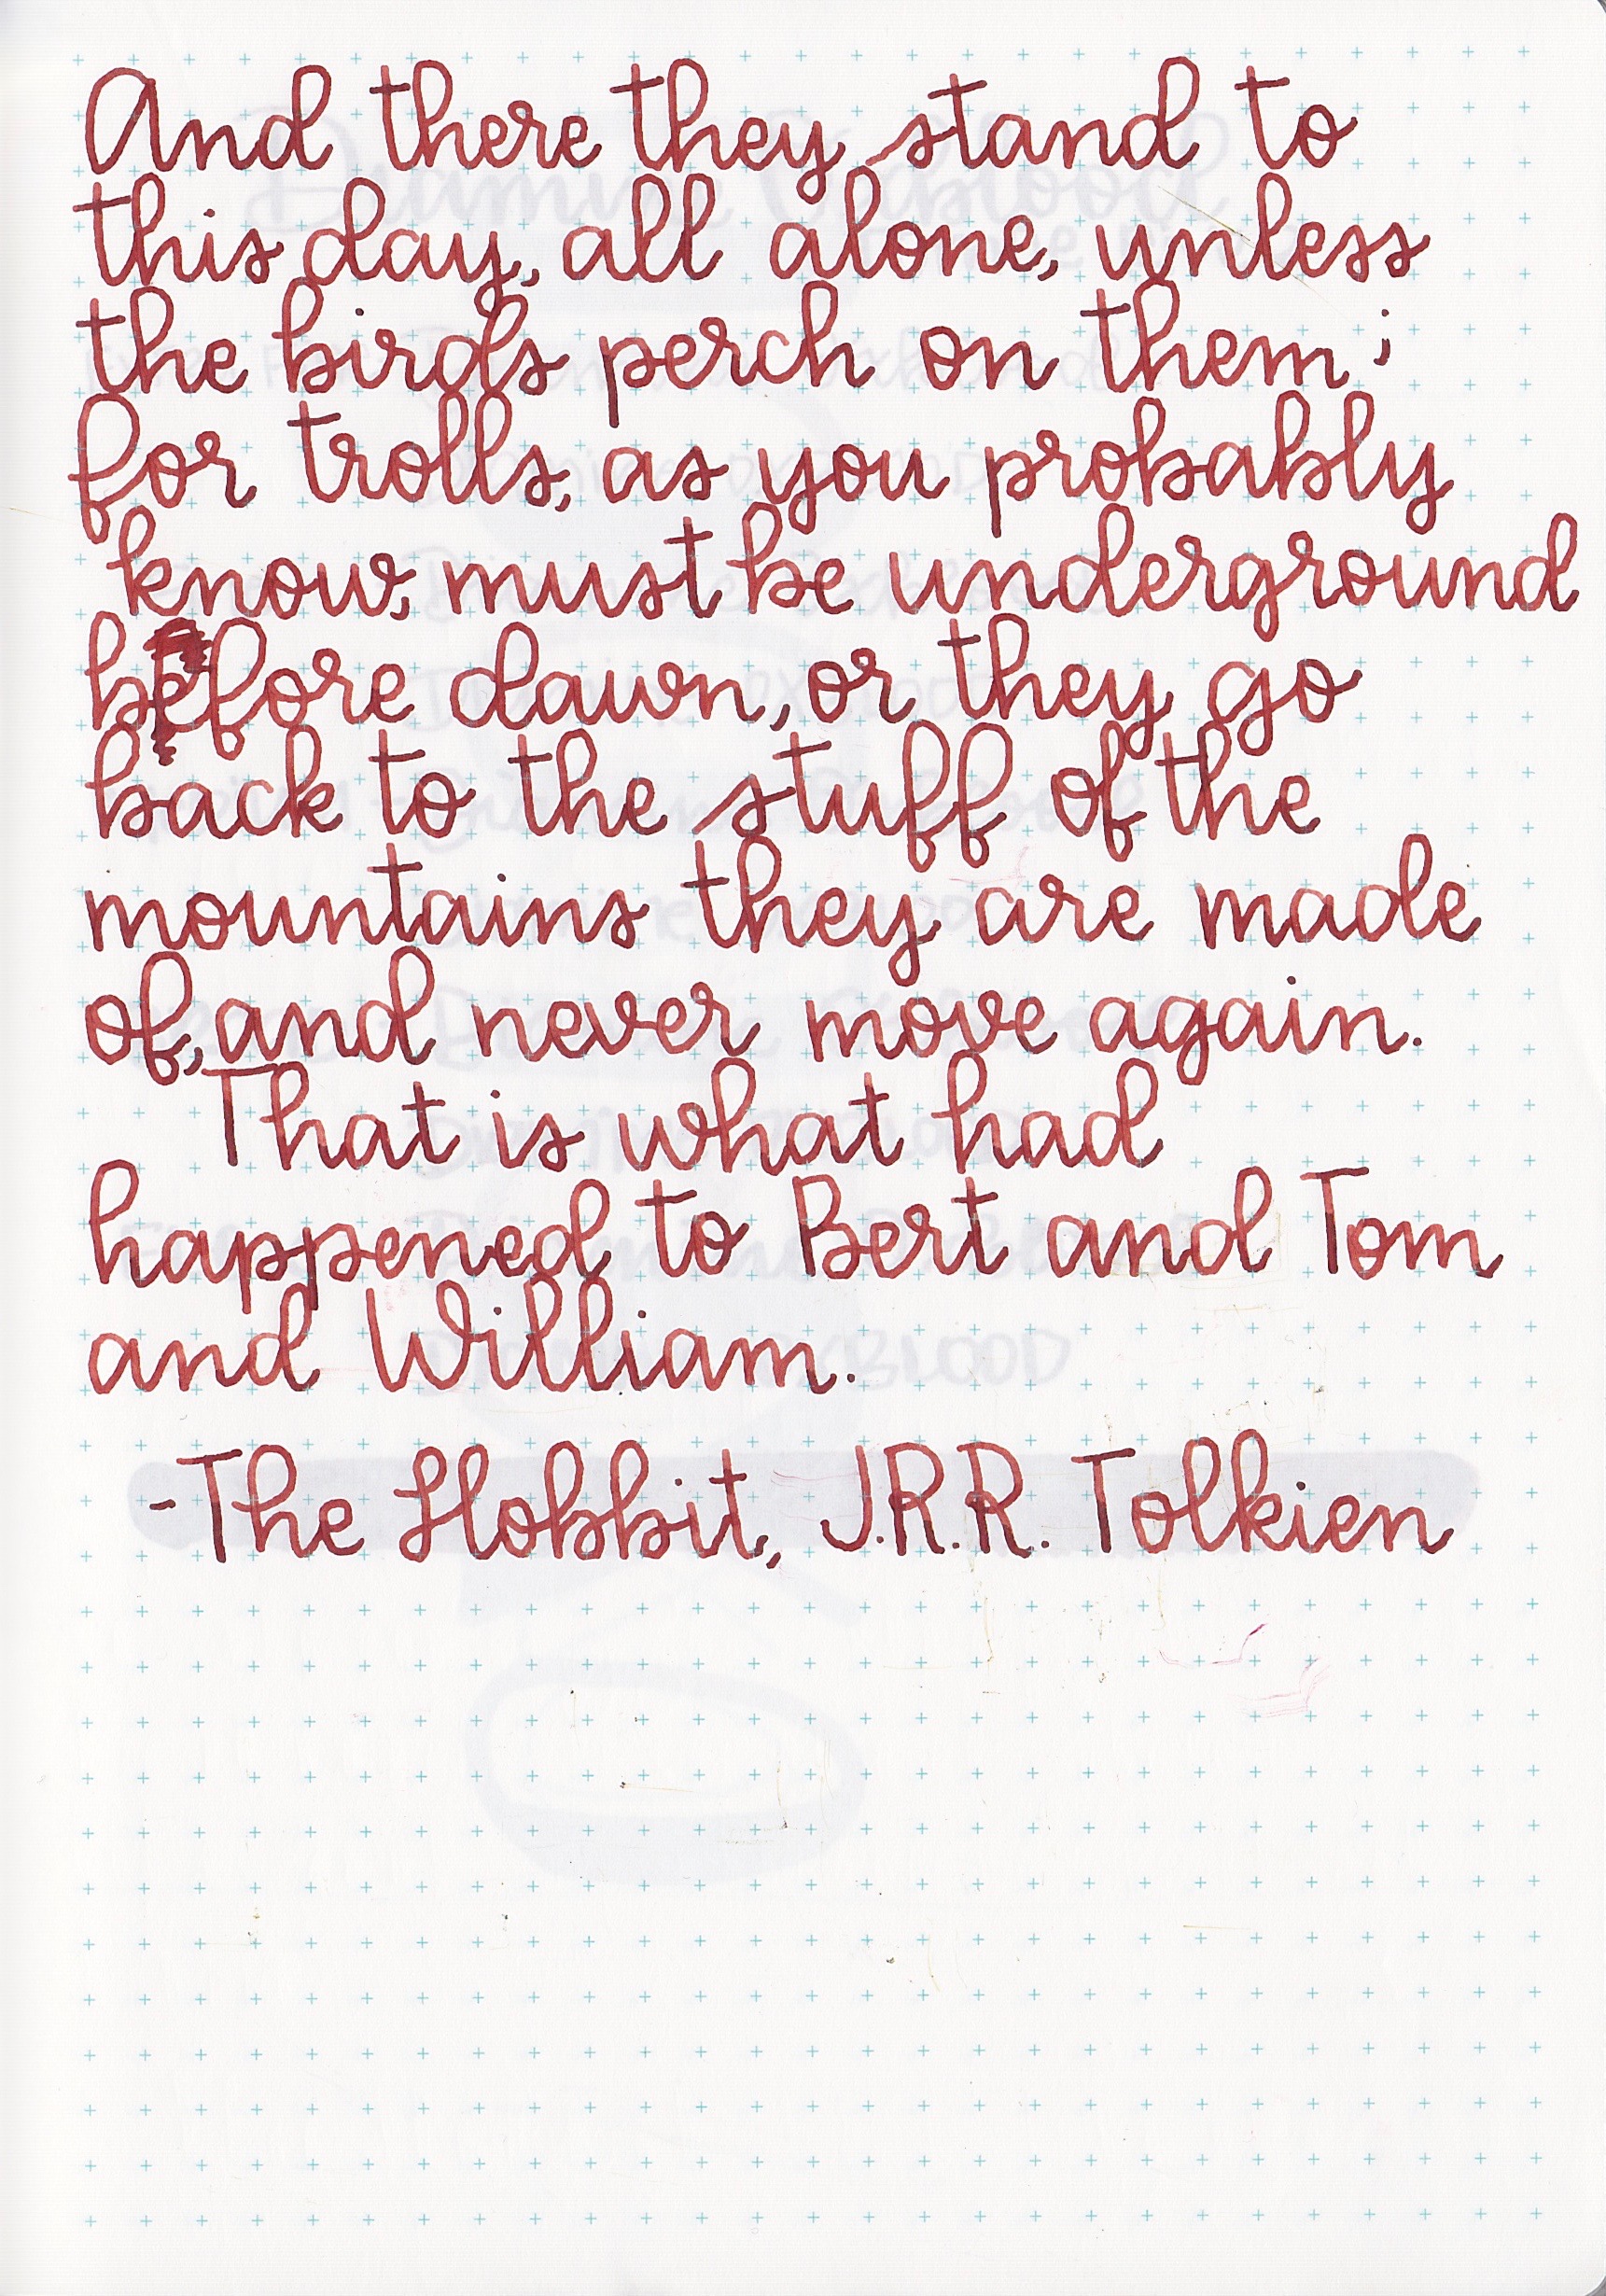 And there they stand to
this day, all alone, unless
the birds perch on them;
for trolls, as you probably
know, must be underground
before dawn, or they go
back to the stuff of the
mountains they are made
of, and never move again.
That is what had
happened to Bert and Tom
and William.
-The Hobbit, J.R.R. Tolkien